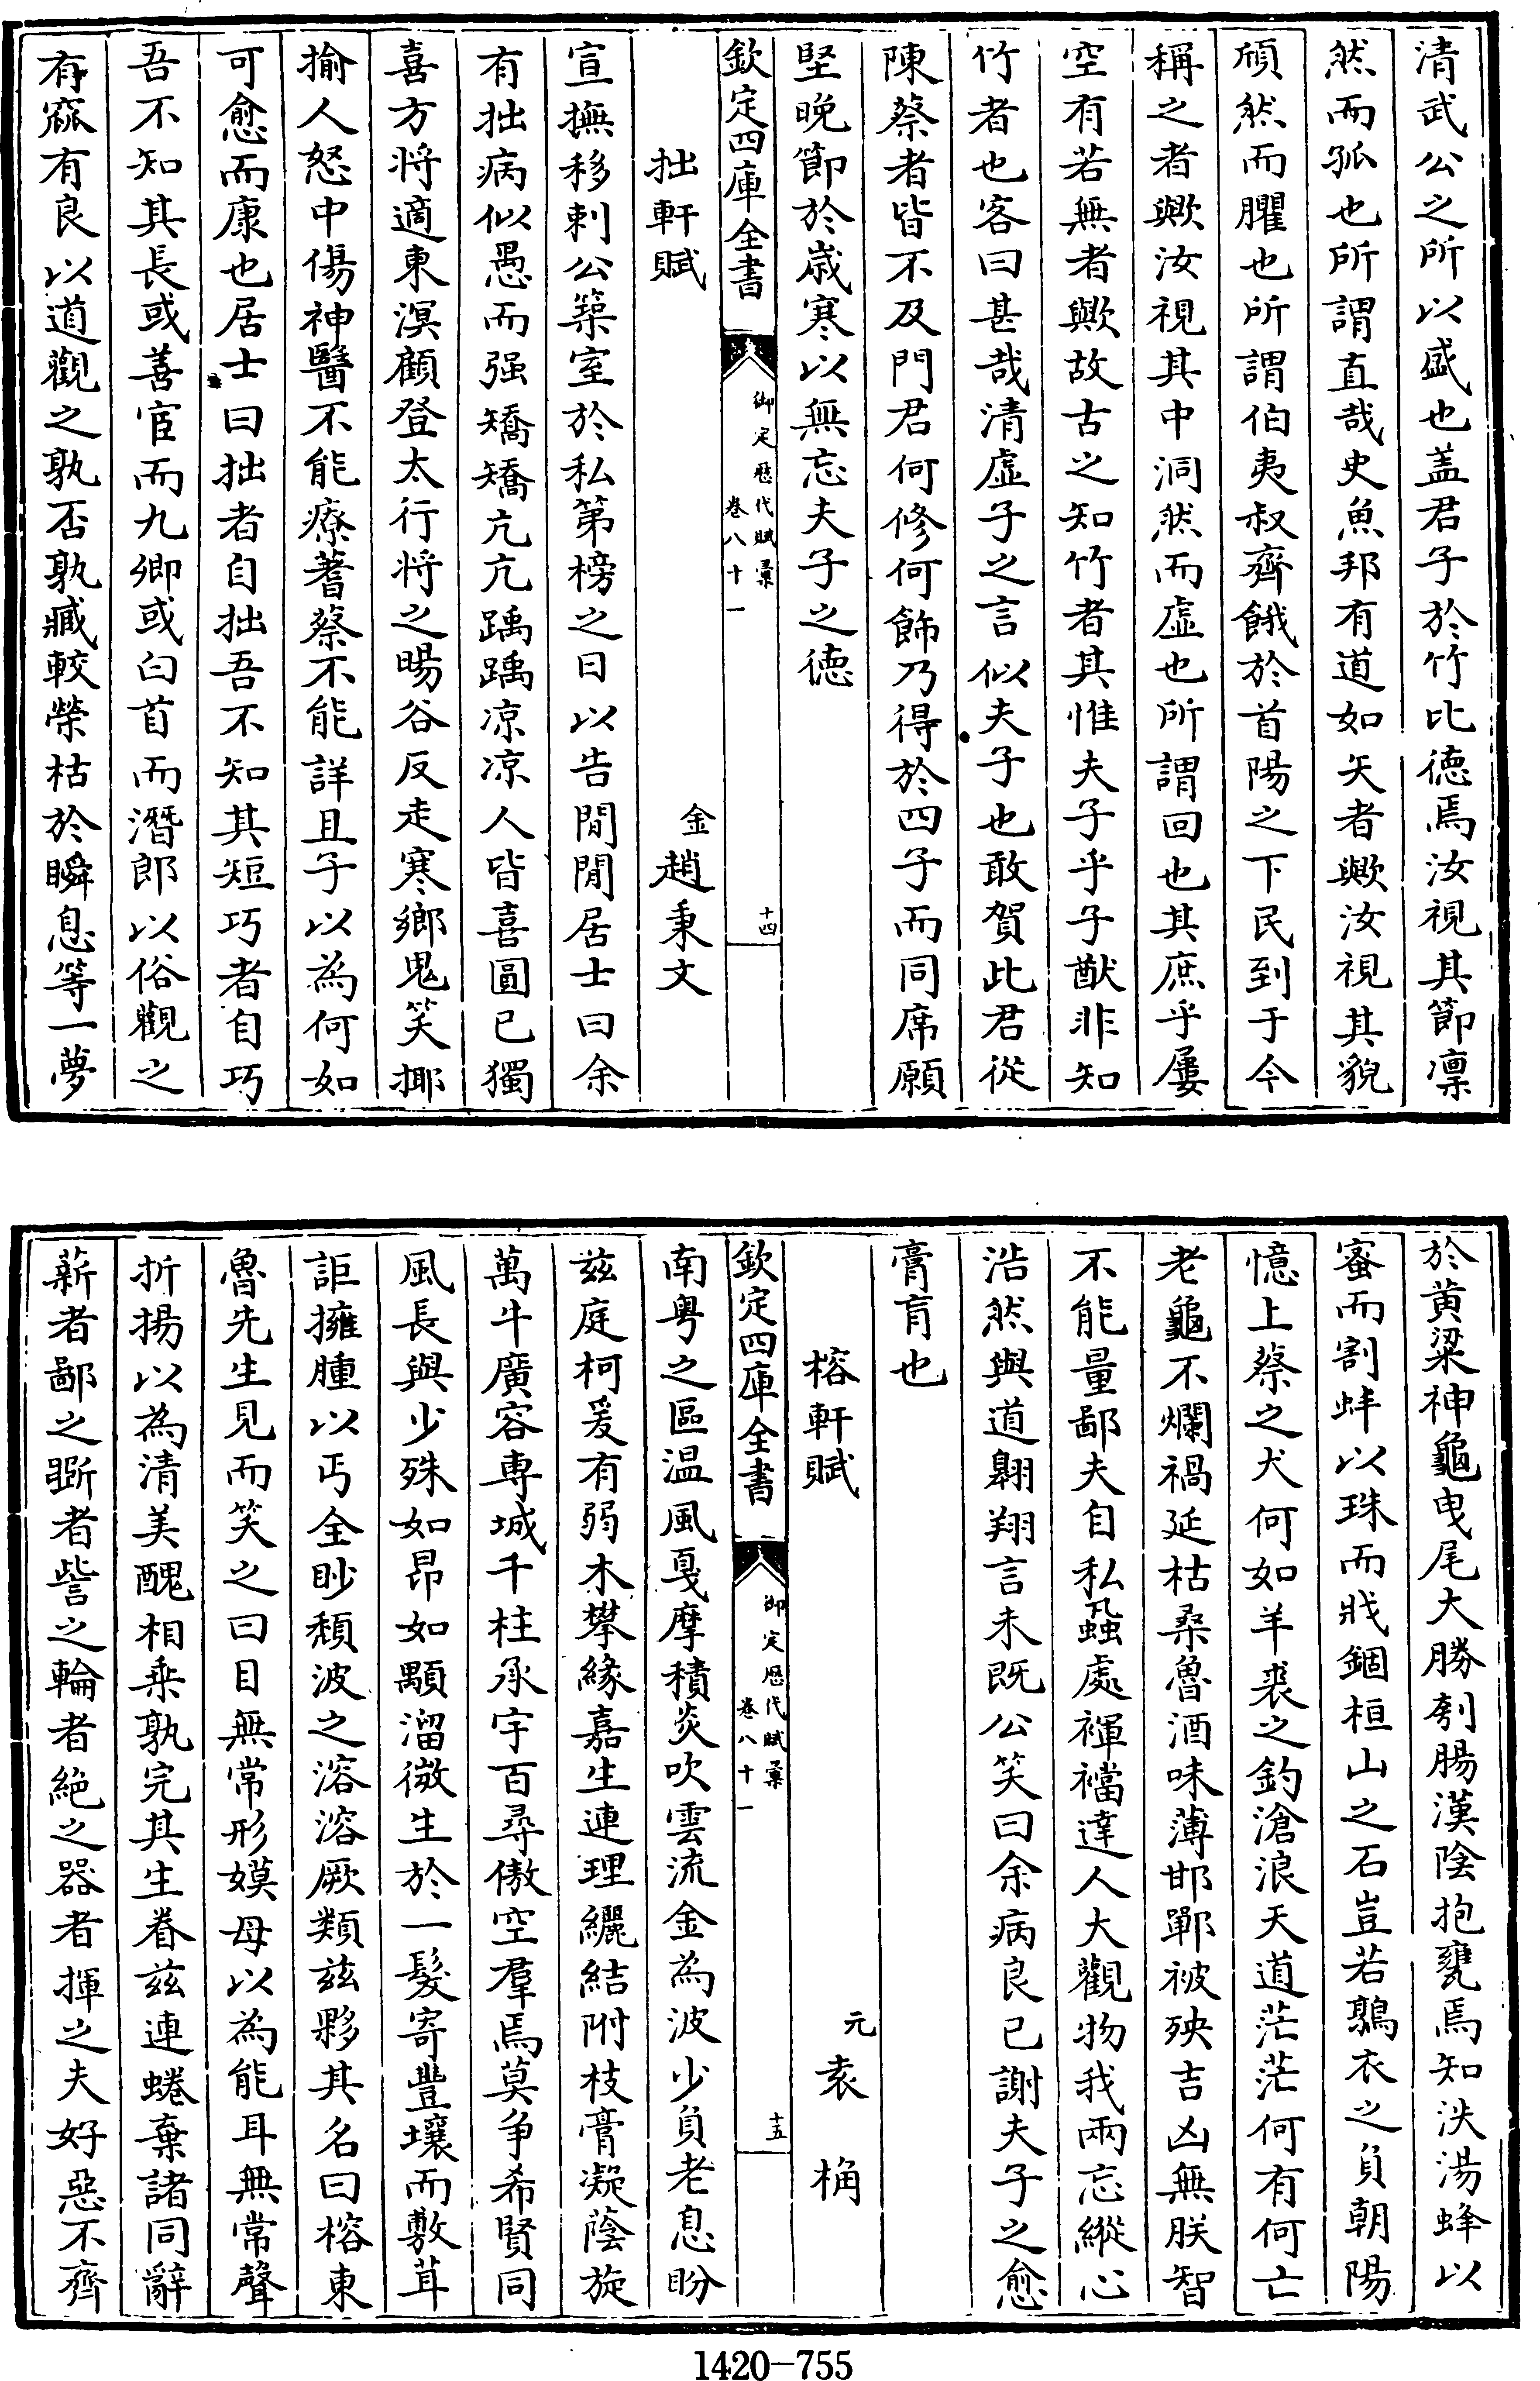 清武公之所以盛也盖君子於竹比德焉汝視其節凛
然而孤也所謂直哉史魚邦有道如矢者歟汝視其貌
頎然而臞也所謂伯夷叔齊餓於首陽之下民到于今
稱之者歟汝視其中洞然而虛也所謂回也其庶乎屢
空有若無者歟故古之知竹者其惟夫子乎子猷非知
竹者也客曰甚哉清虛子之言似夫子也敢賀此君從
陳蔡者皆不及門君何修何飾乃得於四子而同席願
堅晚節於歲寒以無忘夫子之德
欽定四庫全書
御定歷代賦彙
卷八十一
十四
拙軒賦
金趙秉文
宣撫移剌公築室於私第榜之曰以告閒閒居士曰余
有拙病似愚而强矯矯亢亢踽踽凉凉人皆喜圓已獨
喜方將適東溟顧登太行將之暘谷反走寒鄉鬼笑揶
揄人怒中傷神醫不能療蓍蔡不能詳且子以為何如
可愈而康也居士曰拙者自拙吾不知其短巧者自巧
吾不知其長或善宦而九卿或白首而潛郎以俗觀之
有窳有良以道觀之孰否孰臧較榮枯於瞬息等一夢
於黄粱神龜曳尾大勝刳腸漢陰抱甕焉知泆湯蜂以
蜜而割蚌以珠而戕錮桓山之石豈若鶉衣之負朝陽
憶上蔡之犬何如羊裘之釣滄浪天道茫茫何有何亡
老龜不爛禍延枯桑魯酒味薄邯鄲被殃吉凶無朕智
不能量鄙夫自私蝨處褌襠達人大觀物我兩忘縱心
浩然與道翺翔言未既公笑曰余病良已謝夫子之愈
膏肓也
榕軒賦
元袁桷
欽定四庫全書
御定歷代賦彙
卷八十一
十五
南粤之區温風戛摩積炎吹雲流金為波少負老息盼
兹庭柯爰有弱木攀緣嘉生連理纚結附枝膏凝蔭旋
萬牛廣容専城千柱承宇百尋傲空羣焉莫争希賢同
風長與少殊如昂如顒溜微生於一髮寄豐壤而敷茸
詎擁腫以丐全眇頽波之溶溶厥類兹夥其名曰榕東
魯先生見而笑之曰目無常形嫫母以為能耳無常聲
折揚以為清美醜相乗孰完其生眷兹連蜷棄諸同辭
薪者鄙之斲者訾之輪者絶之器者揮之夫好惡不齊
1420-755